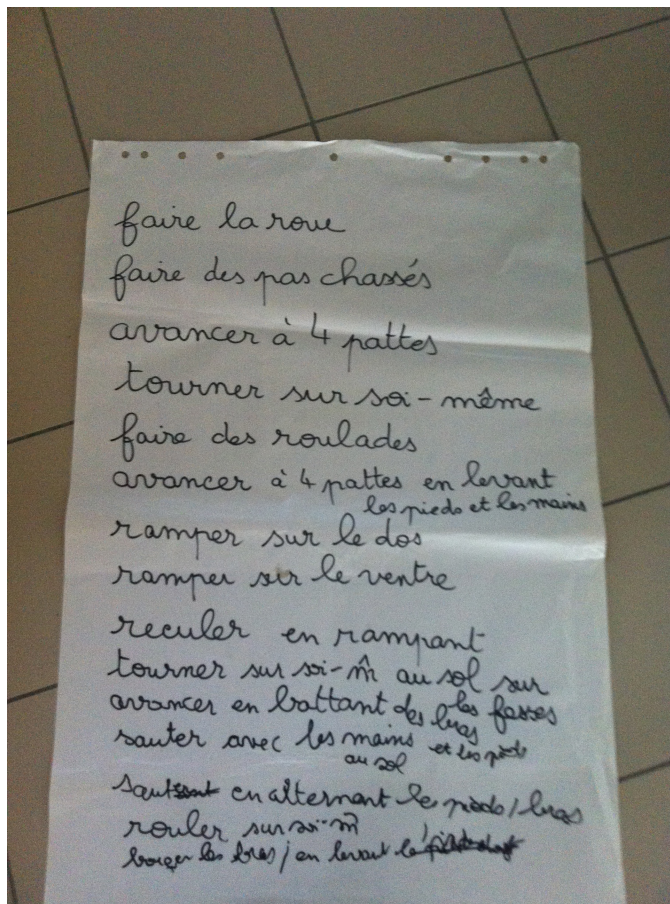 faire la roue
faire des pas chassés
avancer à 4 pattes
tourner sur soi-même
faire des roulades
avancer à 4 pattes en levant
les pieds et les mains
ramper sur le dos
ramper sur le ventre
reculer en rampant
tourner sur soi-m̂ au sol sur
les fesses
avancer en battant des bras
sauter avec les mains et les pieds
au sol
en alternant le pieds/bras
rouler sur soi-m̂
les bras/en levant le